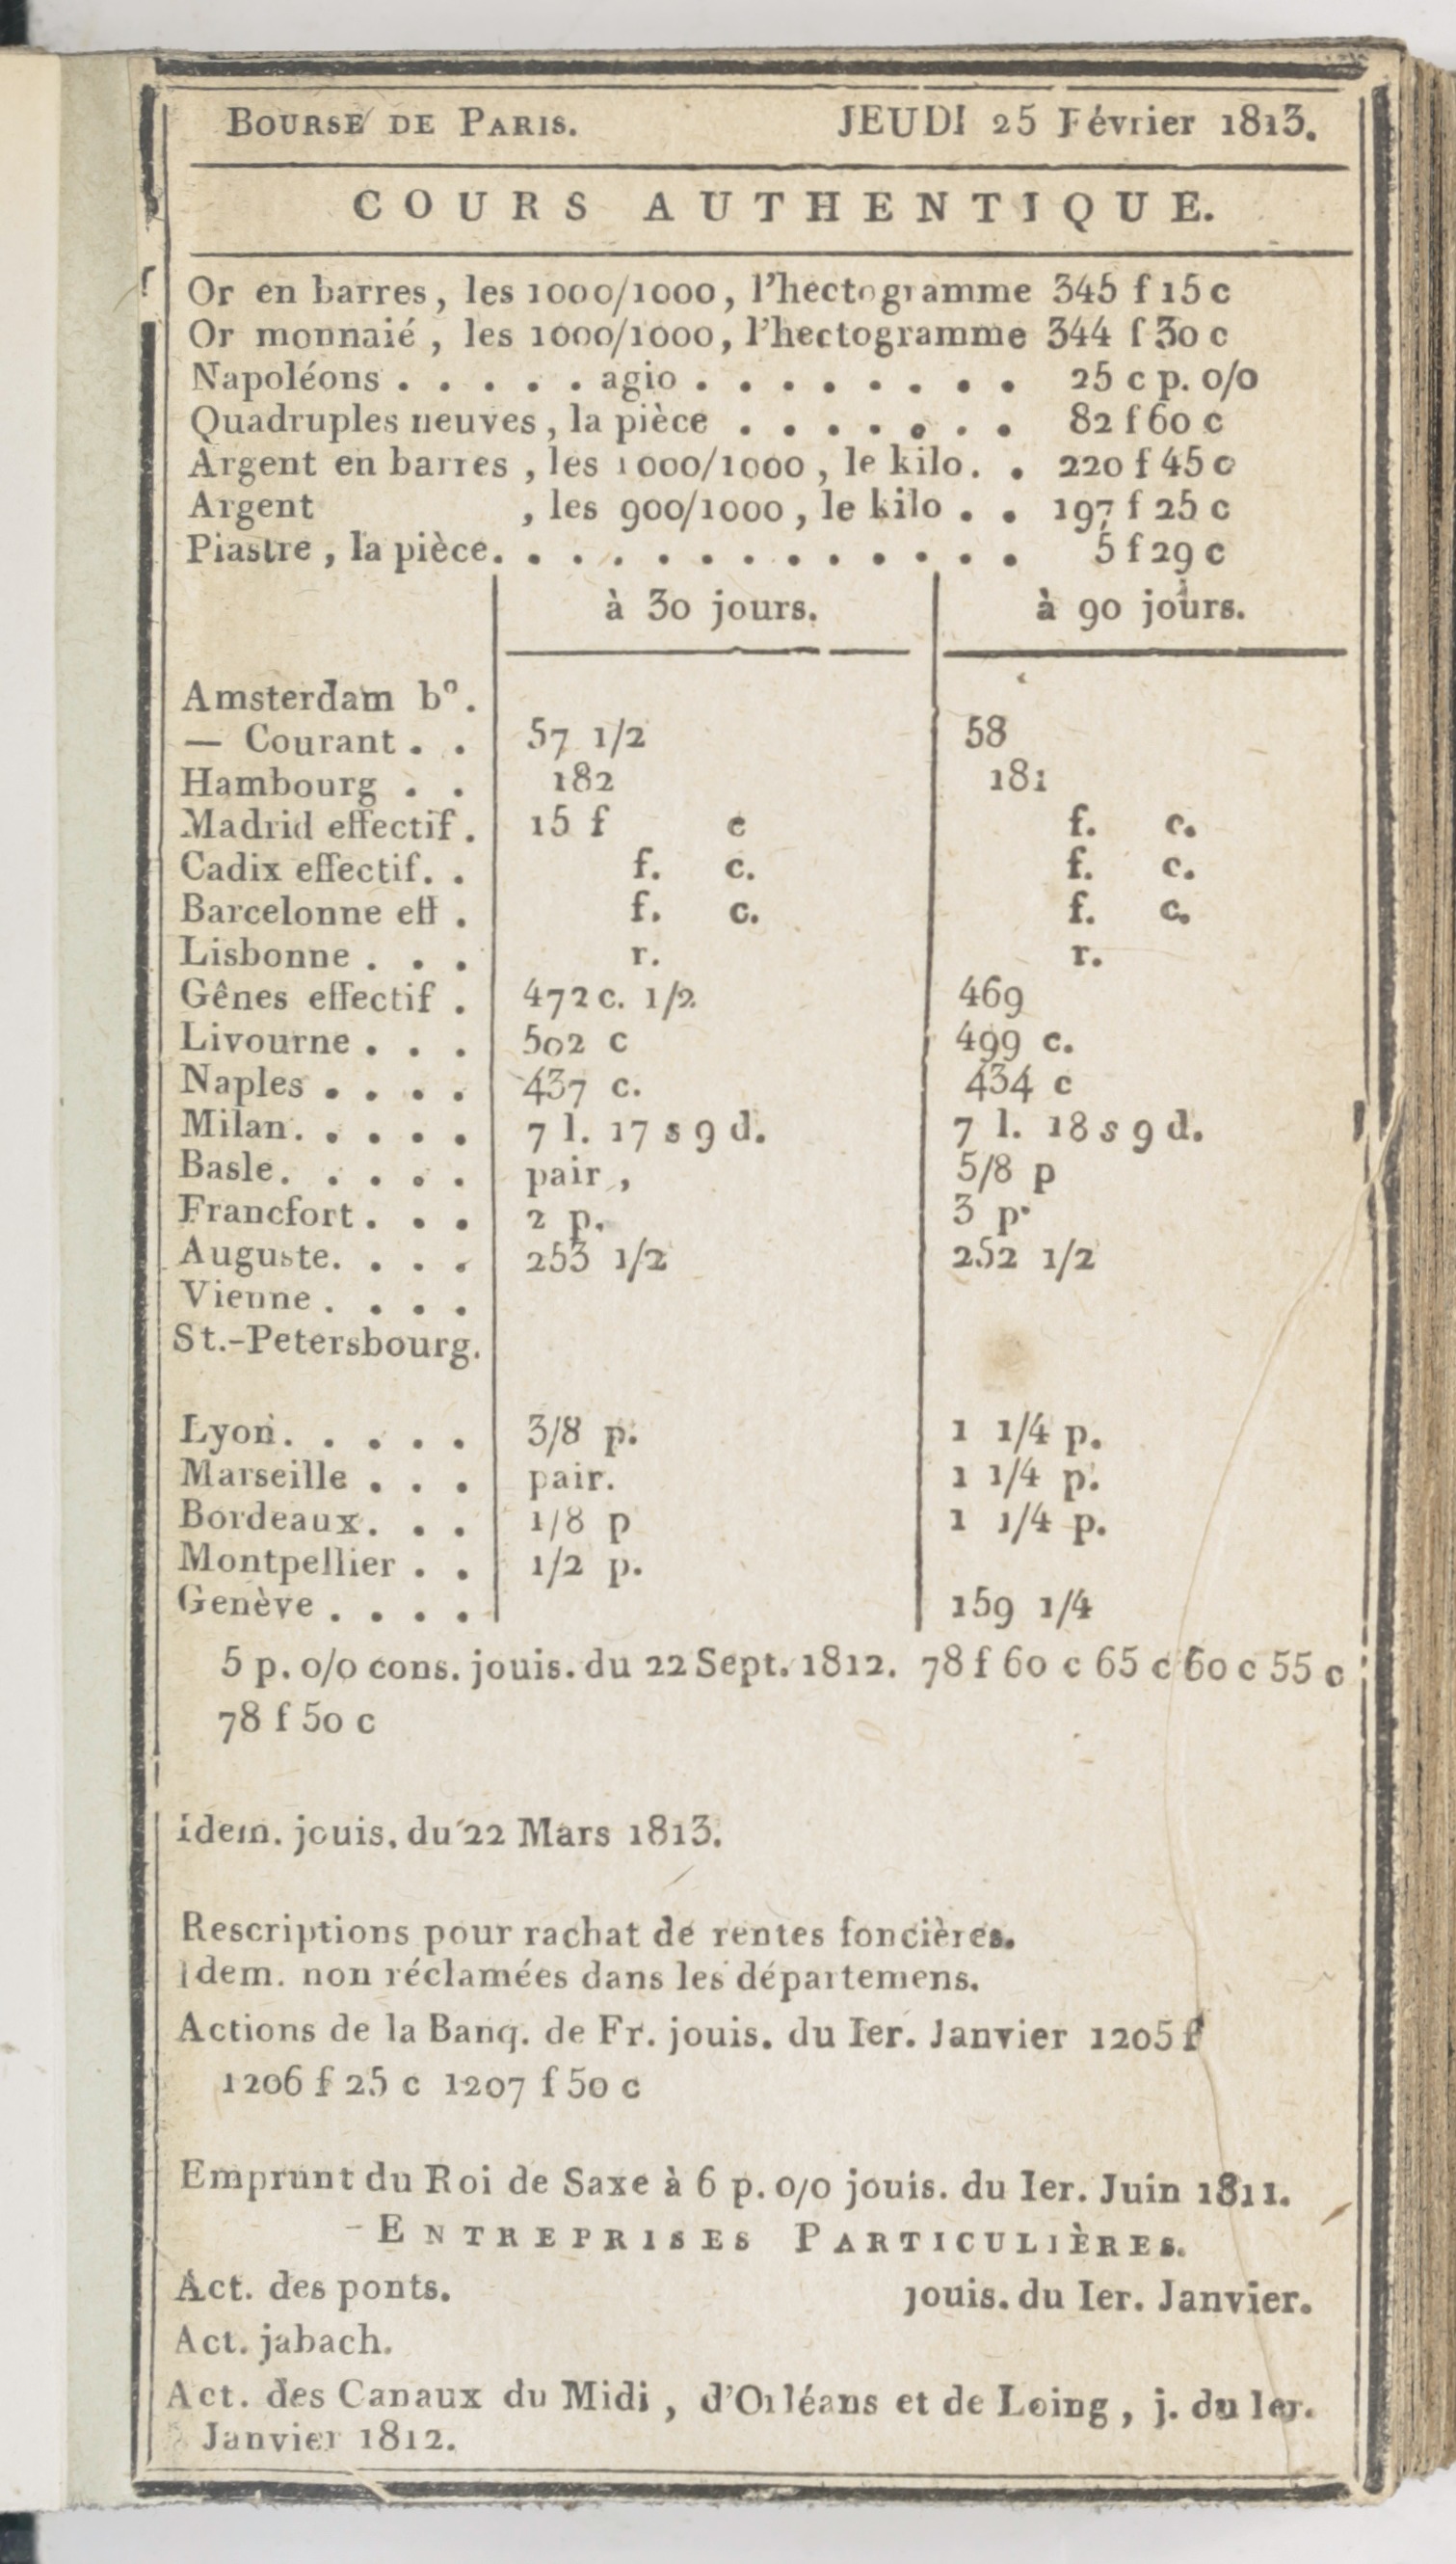 BOURSE DE PARIS. JEUDI 25 Février 1813.
COURS AUTHENTIQUE.
Or en barres, les 1000/1000, l'hectogramme 345 f 15 c
Or monnaié, les 1000/1000, l'hectogramme 344 f 30 c
Napoléons . . . . . agio . . . . . . . . 25 c p. o/o
Quadruples neuves, la pièce . . . . . . . 82 f 60 c
Argent en barres, les 1000/1000, le kilo. . 220 f 45 c
Argent , les 900/1000, le kilo . . 197 f 25 c
Piastre, la pièce. . . . . . . . . . . . . 5 f 29 c
à 30 jours. à 90 jours.
Amsterdam bº.
— Courant . . 57 1/2 58
Hambourg . . 182 181
Madrid effectif . 15 f c f. c.
Cadix effectif. . f. c. f. c.
Barcelonne eff . f. c. f. c.
Lisbonne . . . r. r.
Gênes effectif . 472 c. 1/2 469
Livourne . . . 502 c 499 c.
Naples . . . . 437 c. 434 c
Milan. . . . . 7 l. 17 s 9 d. 7 l. 18 s 9 d.
Basle. . . . . pair, 5/8 p
Francfort . . . 2 p. 3 p.
Auguste. . . . 253 1/2 252 1/2
Vienne . . . .
St.-Petersbourg.
Lyon. . . . . 3/8 p. 1 1/4 p.
Marseille . . . pair. 1 1/4 p.
Bordeaux. . . 1/8 p 1 1/4 p.
Montpellier . . 1/2 p.
Genève . . . . 159 1/4
5 p. o/o cons. jouis. du 22 Sept. 1812. 78 f 60 c 65 c 60 c 55 c
78 f 50 c
idem. jouis. du 22 Mars 1813.
Rescriptions pour rachat de rentes foncières.
Idem. non réclamées dans les départemens.
Actions de la Banq. de Fr. jouis. du Ier. Janvier 1205 f
1206 f 25 c 1207 f 50 c
Emprunt du Roi de Saxe à 6 p. o/o jouis. du Ier. Juin 1811.
ENTREPRISES PARTICULIÈRES.
Act. des ponts. jouis. du Ier. Janvier.
Act. jabach.
Act. des Canaux du Midi, d'Orléans et de Loing, j. du Ier.
Janvier 1812.